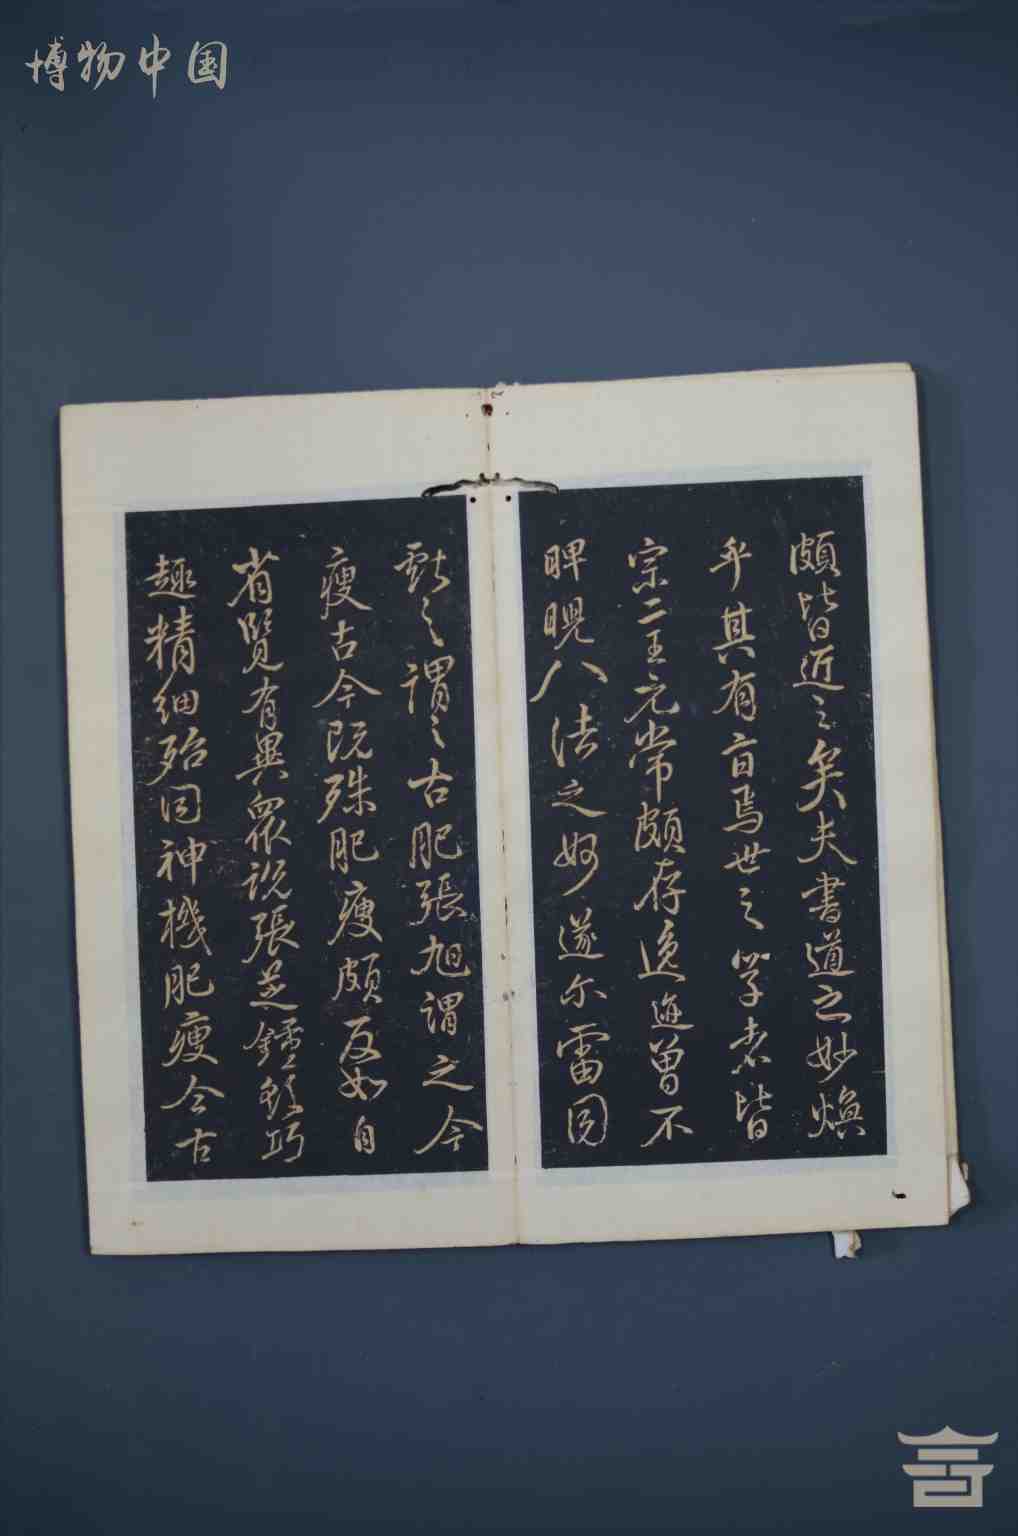 博物中国
頗皆近之矣夫書道之妙煥
乎其有旨焉世之學者皆
宗二王元常頗存逸迹曾不
睥睨八法之妙遂尔雷同
獻之謂之古肥張旭謂之今
瘦古今既殊肥瘦頗反如自
省覽有異眾說張芝鍾繇巧
趣精細殆同神機肥瘦今古